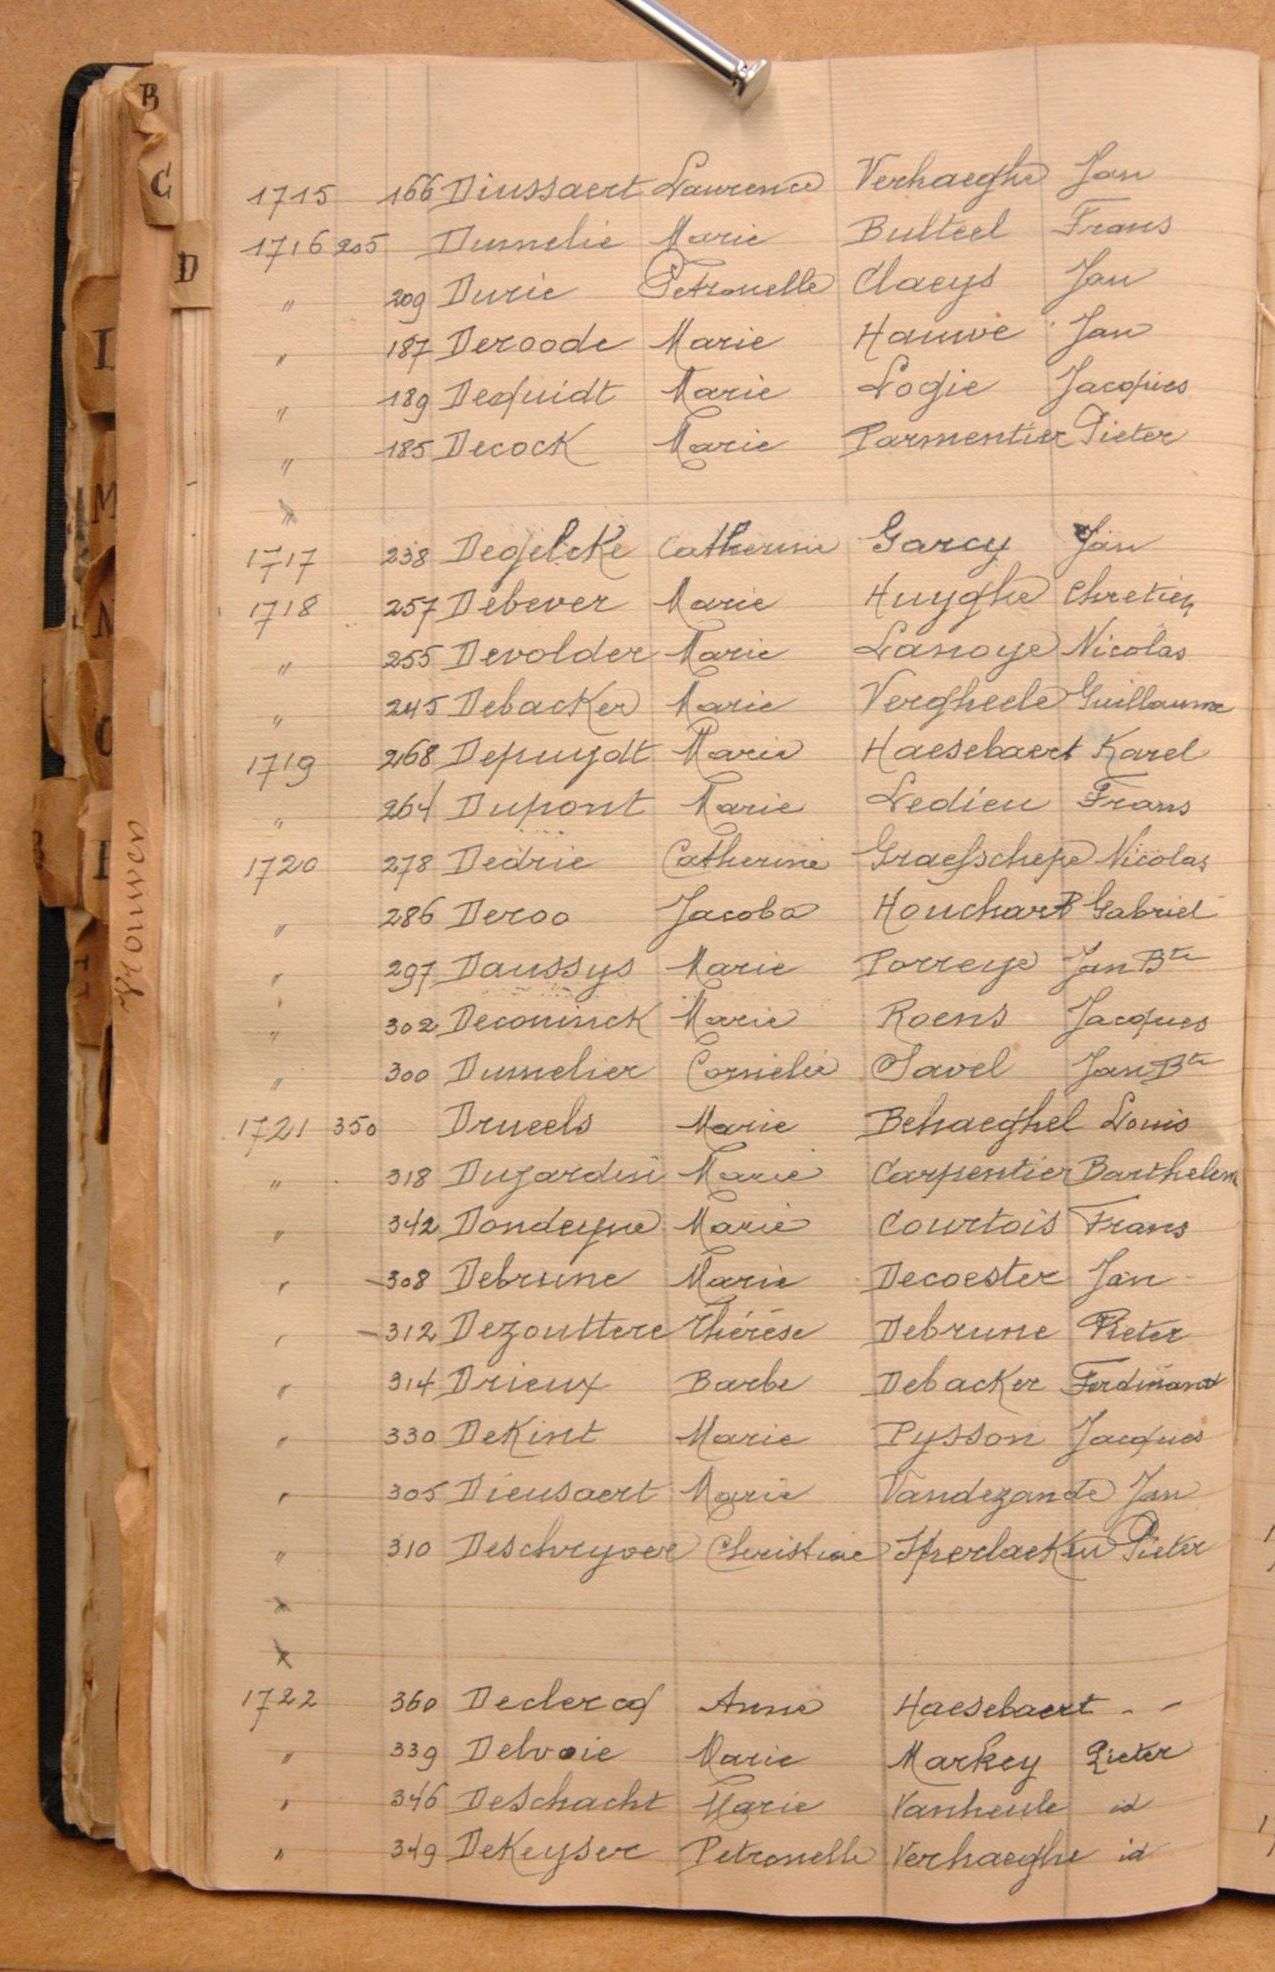 B
C
D
L
M
N
O
Vrouwen
1715 166 Diussaert Laurence Verhaeghe Jan
1716 205 Dumelie Marie Bulteel Frans
" 209 Durie Petronelle Claeys Jan
" 187 Deroode Marie Hauwe Jan
" 189 Dequidt Marie Logie Jacques
" 185 Decock Marie Parmentier Pieter
"
1717 238 Degelcke Catherine Garcy Jan
1718 257 Debever Marie Huyghe Chretien
" 255 Devolder Marie Lanoye Nicolas
" 245 Debacker Marie Vergheele Guillaume
1719 268 Depuydt Marie Haesebaert Karel
" 264 Dupont Marie Ledieu Frans
1720 278 Dedrie Catherine Graefschepe Nicolas
" 286 Deroo Jacoba Houchart Gabriel
" 297 Daussys Marie Porreye Jan Bte
" 302 Deconinck Marie Roens Jacques
" 300 Dumelier Cornelie Savel Jan Bte
1721 350 Drueels Marie Behaeghel Louis
" 318 Dujardin Marie Carpentier Barthelem
" 342 Dondeyne Marie Courtois Frans
" 308 Debrune Marie Decoester Jan
" 312 Dezouttere Thérèse Debrune Pieter
" 314 Drieux Barbe Debacker Ferdinand
" 330 DeKint Marie Pysson Jacques
" 305 Dieusaert Marie Vandezande Jan
" 310 Deschryver Christine Sperlaeken Pieter
1722 360 Declercq Anne Haesebaert - -
" 339 Delvoie Marie Markey Pieter
" 346 DeSchacht Marie Vanheule id
" 349 DeKeyser Petronelle Verhaeghe id